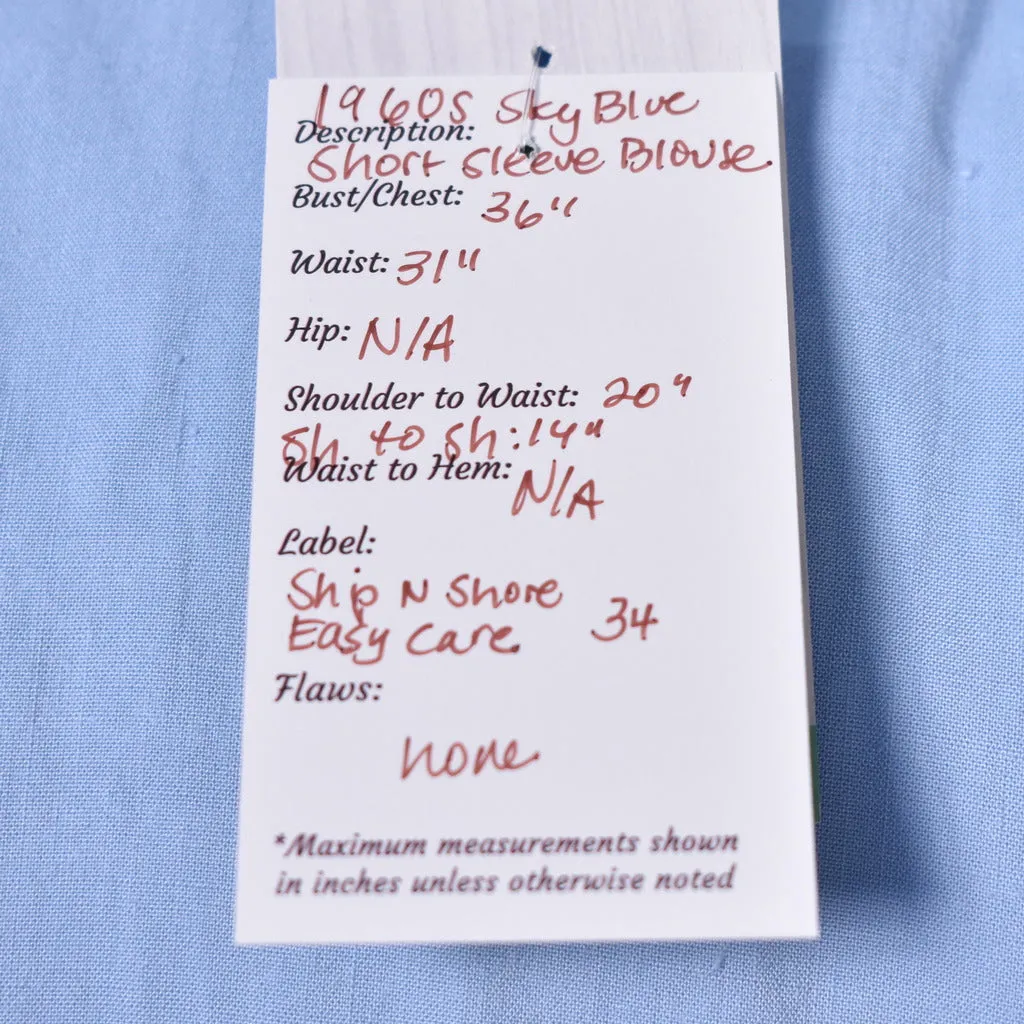 1960s Sky Blue
Description:
Short Sleeve Blouse.
Bust/Chest: 36"
Waist: 31"
Hip: N/A
Shoulder to Waist: 20"
Sh to Sh: 14"
Waist to Hem: N/A
Label:
Ship N Shore
Easy Care. 34
Flaws:
none
*Maximum measurements shown
in inches unless otherwise noted